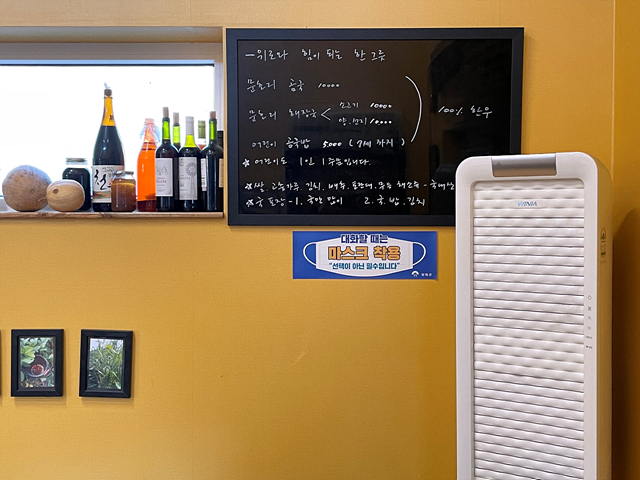 一 위로와 힘이 되는 한 그릇
문호리 곰국 10000
문호리 해장국 < 소고기 10000
양.선지 10000
100% 한우
어린이 곰국밥 5000 (7세 까지)
※ 어린이도 1인 1주문입니다.
※ 쌀, 고춧가루, 김치, 배추, 무우
※ 국 포장 - 1. 국만 많이 2. 국, 밥, 김치
대화할 때는
마스크 착용
"선택이 아닌 필수입니다"
WINIA